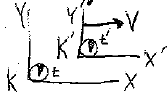 Y Y' V
K' t' X'
K t X